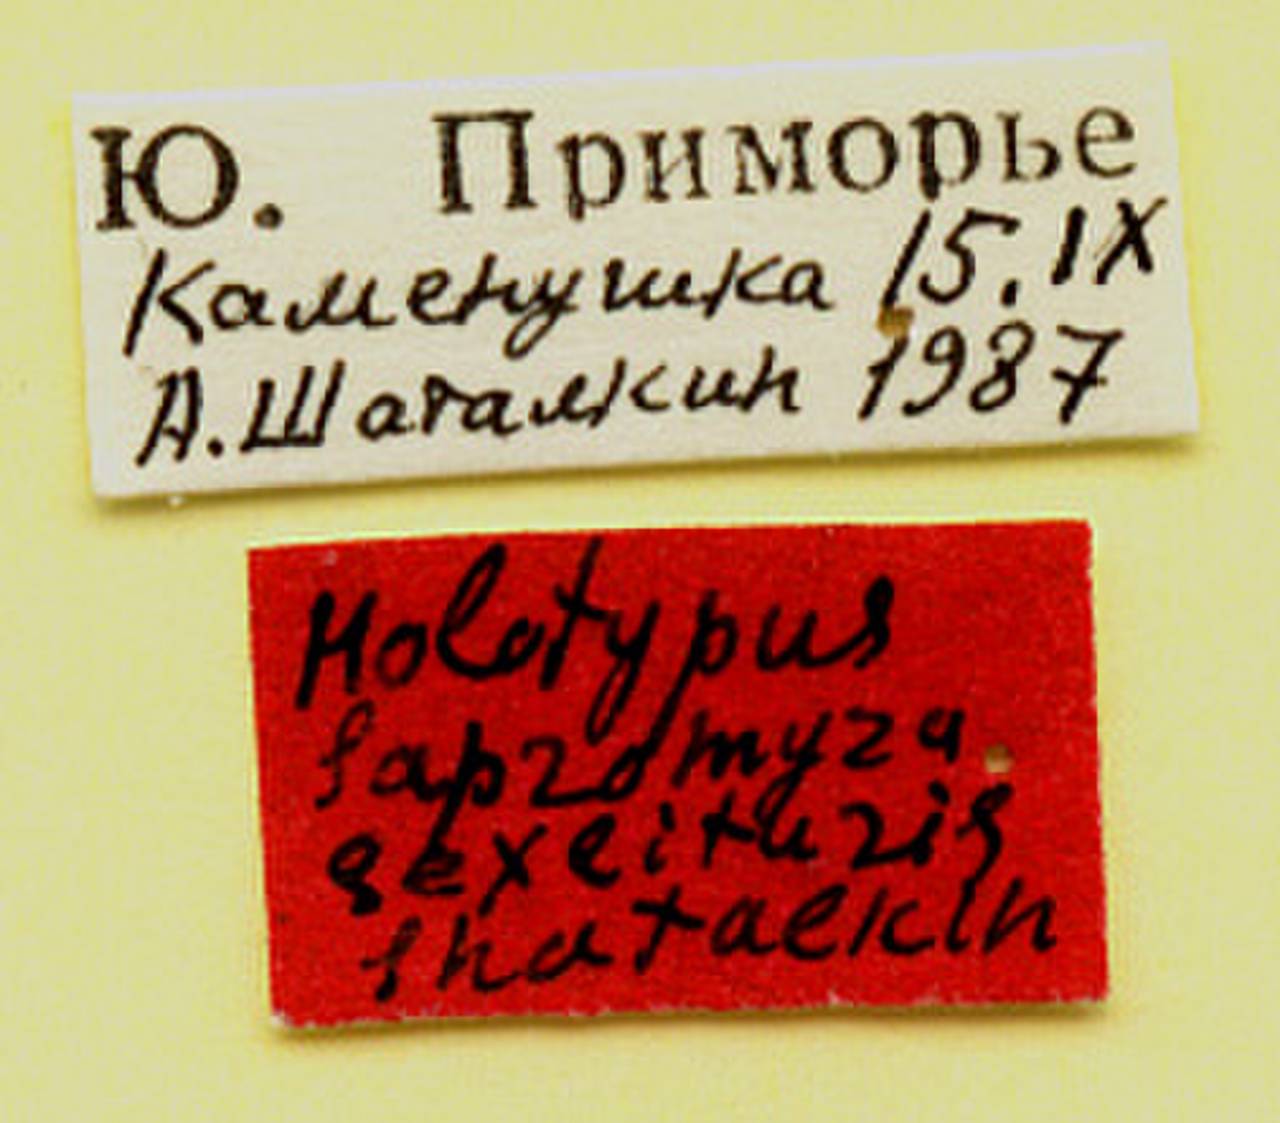 Ю. Приморье
Каменушка 15.IX
А.Шаталкин 1987
Holotypus
Sapromyza
sexlituris
Shatalkin